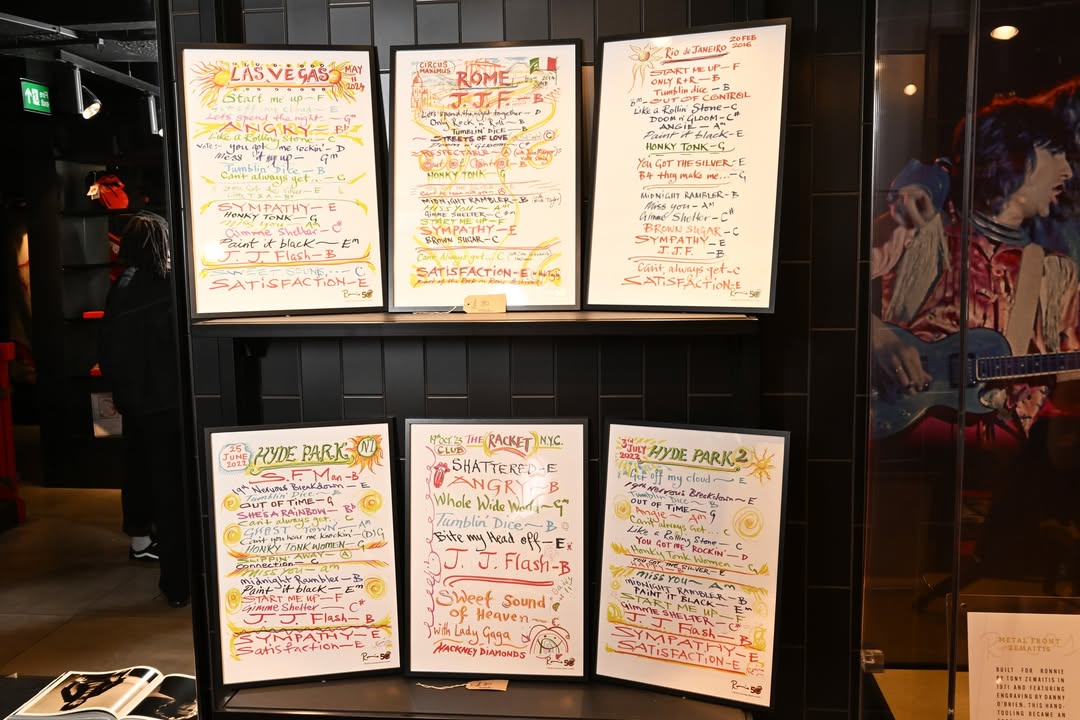 LAS VEGAS
MAY
11
2024
Start me up - F
Let's spend the night - G
ANGRY - B
Like a Rolling Stone - C
Vote:- you got me rockin' - D
Mess it up - Gm
Tumblin' Dice - B
Can't always get... - C
SYMPATHY - E
HONKY TONK - G
Gimme Shelter - C#
Paint it black - Em
J.J. Flash - B
SWEET SOUNDS...- C
SATISFACTION - E
CIRCUS
MAXIMUS
ROME
J.J.F. - B
Let's spend the night together - D
Only Rock n' Roll - B
TUMBLIN' DICE - B
STREETS OF LOVE
DOOM n' GLOOM - C#
RESPECTABLE - A
Out of Control
HONKY TONK - G
MIDNIGHT RAMBLER - B
MISS YOU - Am
GIMME SHELTER - C#m
START ME UP - F
SYMPATHY - E
BROWN SUGAR - C
Can't always get... C
SATISFACTION - E
RIO de JANEIRO
20 FEB
2016
START ME UP - F
ONLY R+R - B
Tumblin' dice - B
OUT OF CONTROL
Like a Rollin' Stone - C
DOOM n' GLOOM - C#
ANGIE - Am
Paint it black - E
HONKY TONK - G
YOU GOT THE SILVER - E
B4 they make me... - G
MIDNIGHT RAMBLER - B
Miss you - Am
Gimme Shelter - C#
BROWN SUGAR - C
SYMPATHY - E
J.J.F. - B
Can't always get - C
SATISFACTION - E
25
JUNE
2022
HYDE PARK
N1
S.F. Man - B
19th Nervous Breakdown - E
Tumblin' Dice - B
OUT OF TIME - G
SHE'S A RAINBOW - Bb
Can't always get. C
GHOST TOWN - Am
Can't you hear me knockin' - D/G
HONKY TONK WOMEN - G
SLIPPIN' AWAY - A
Connection - C
MISS YOU - am
midnight Rambler - B
Paint it black - Em
START ME UP - F
Gimme Shelter - C#
J.J. Flash - B
SYMPATHY - E
Satisfaction - E
19th OCT '23 THE RACKET N.Y.C.
CLUB
SHATTERED - E
ANGRY B
Whole Wide World - Gm
Tumblin' Dice - B
Bite my Head off - E
J.J. Flash - B
Sweet Sound
of Heaven -
with Lady Gaga
HACKNEY DIAMONDS
3rd
JULY
2022
HYDE PARK 2
Get off my cloud - E
19th Nervous Breakdown - E
Tumblin' Dice - B
OUT OF TIME - G
Angie - Am
Can't always Get... C
Like a Rolling Stone - C
YOU GOT ME ROCKIN' - D
Honky Tonk Women - G
YOU GOT ME SILVER - E
MISS YOU - Am
MIDNIGHT RAMBLER - B
PAINT IT BLACK - Em
START ME UP - F
GIMME SHELTER - C#
J.J. Flash - B
SYMPATHY - E
SATISFACTION - E
METAL FRONT
ZEMAITIS
BUILT FOR RONNIE
BY TONY ZEMAITIS IN
1971 AND FEATURING
ENGRAVING BY DANNY
O'BRIEN, THIS HAND-
TOOLING BECAME AN